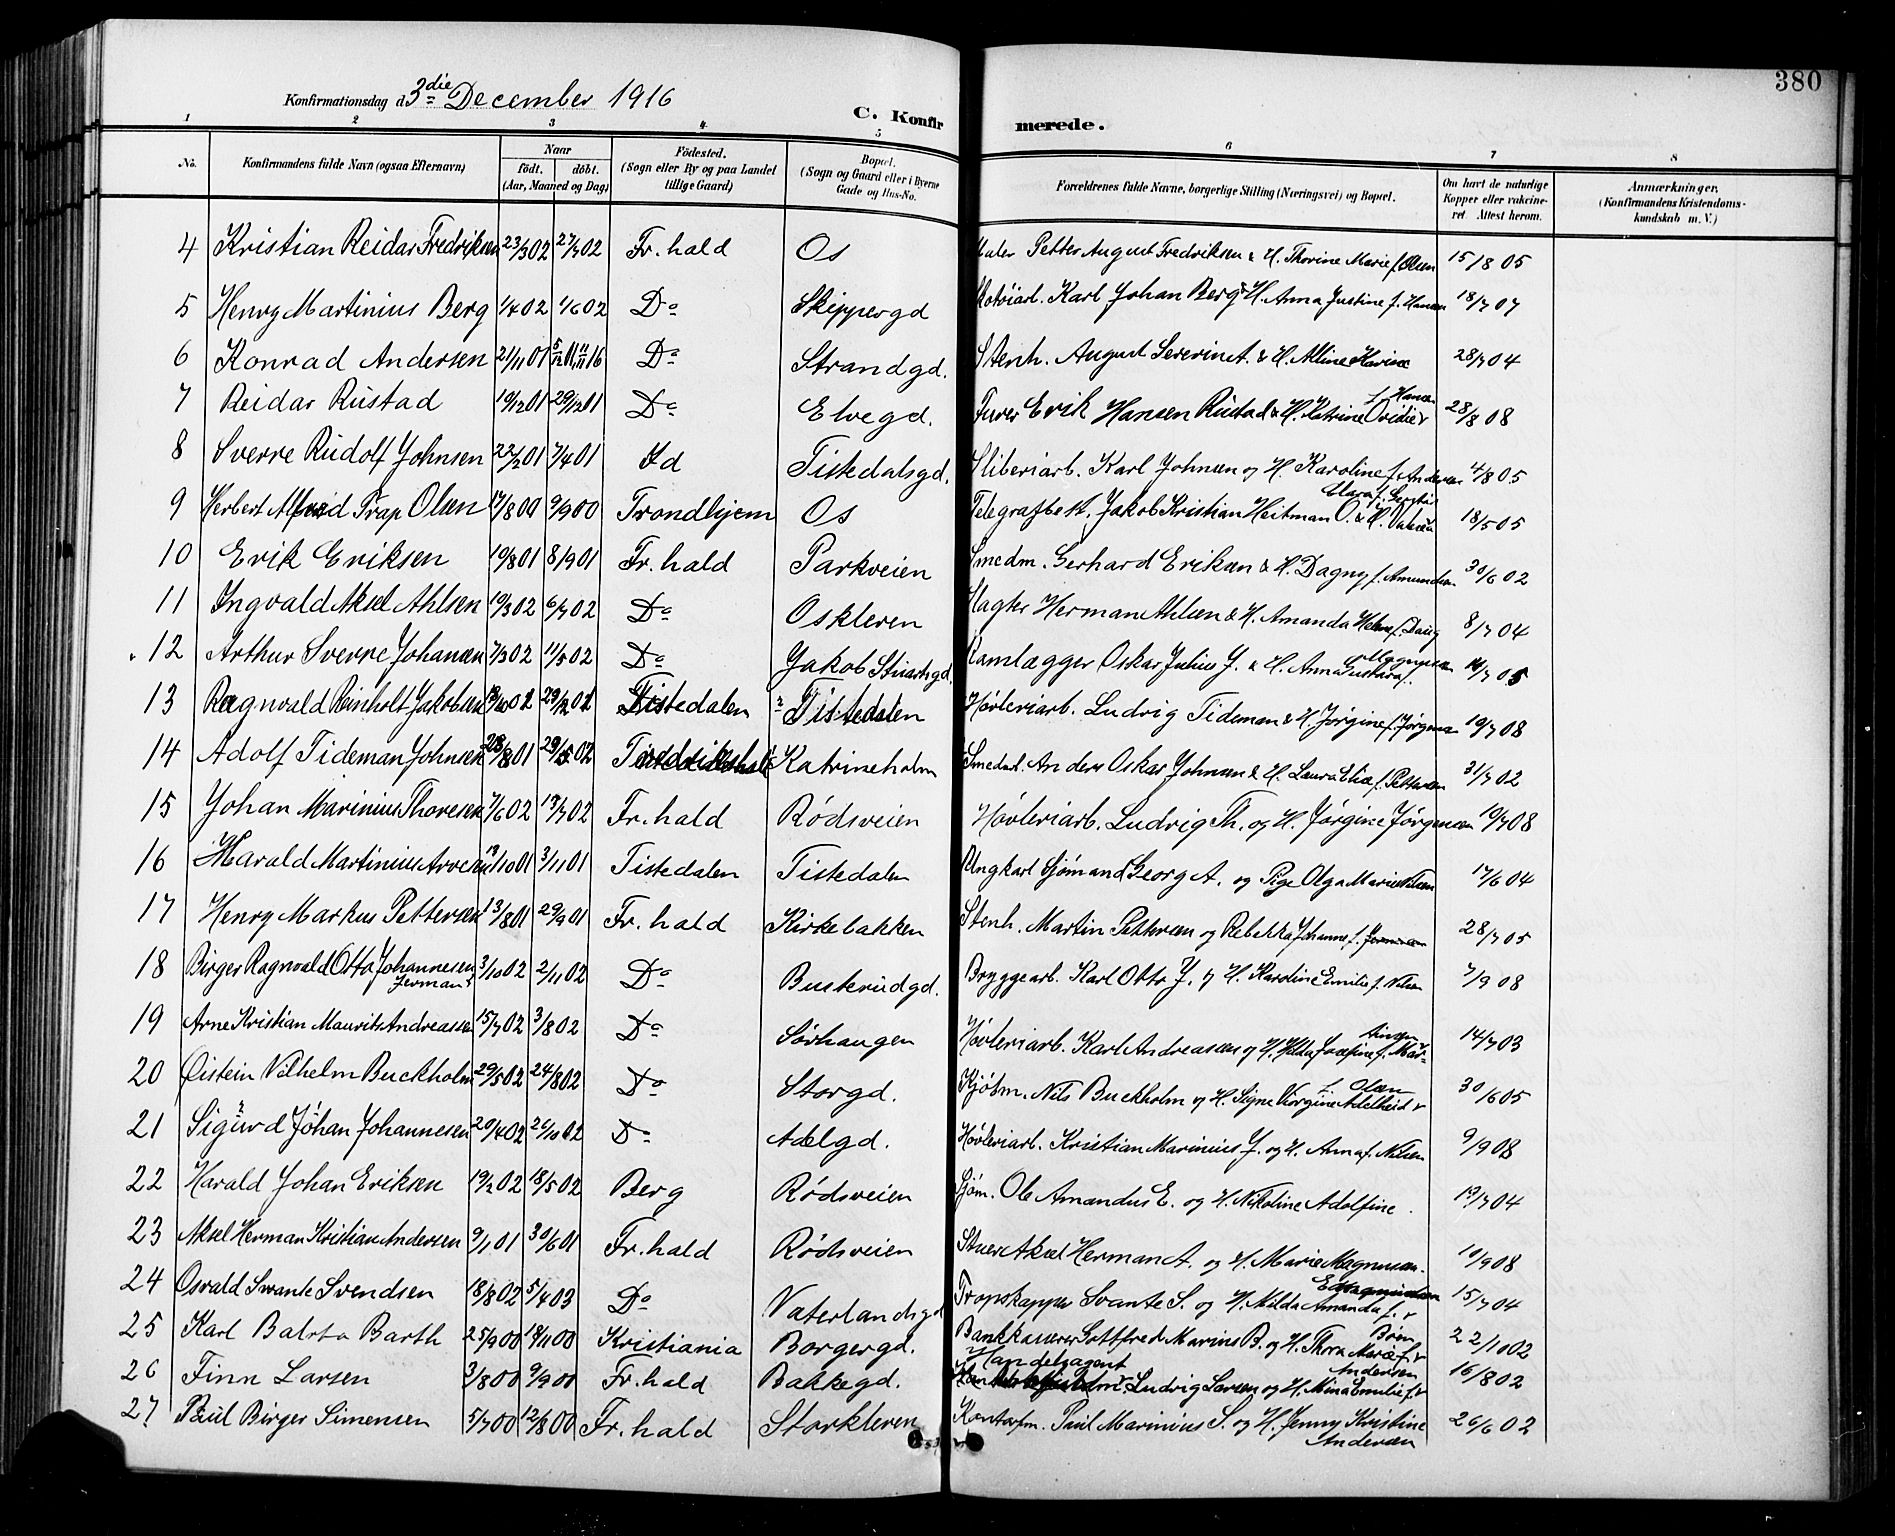 380
Konfirmationsdag d. 3die December 1916
C. Konfirmerede.
1 2 3 4 5 6 7 8
No. Konfirmandens fulde Navn (ogsaa Efternavn) Naar født. døbt. (Aar, Maaned og Dag) Fødested. (Sogn eller By og paa Landet tillige Gaard) Bopæl. (Sogn og Gaard eller i Byerne Gade og Hus-No. Forældrenes fulde Navne, borgerlige Stilling (Næringsvei) og Bopæl. Om havt de naturlige Kopper eller vakcineret. Attest herom. Anmærkninger. (Konfirmandens Kristendomskundskab m. V.)
4 Kristian Reidar Fredriksen 23/3 02 27/7 02 Fr.hald Os Maler Petter August Fredriksen & H. Thorine Marie f. Olsen 15/8 05
5 Henry Martinius Berg 1/4 02 1/6 02 Do Skippergd Karl Johan Berg & H. Anna Justine f. Hansen 18/7 07
6 Konrad Andersen 21/11 01 5/12 01, 11/11 16 Do Strandgd. Stenh. August Severin A. & H. Alline Karine 28/7 04
7 Reidar Rustad 19/12 01 29/12 01 Do Elvegd. Furer Erik Hansen Rustad & H. Katrine Ovidie f. Hansen 28/8 08
8 Sverre Rudolf Johnsen 22/2 01 7/4 01 Id Tistedalsgd. Sliberiarb. Karl Johnsen og H. Karoline f. Andersen 4/8 05
9 Herbert Alfred Trap Olsen 17/8 00 9/9 00 Trondhjem Os Telegrafbest. Jakob Kristian Heitman O. & H. Clara f. 18/5 05
10 Erik Eriksen 19/8 01 8/9 01 Fr.hald Parkveien Smedm. Gerhard Eriksen & H. Dagny f. Amundsen 30/6 02
11 Ingvald Aksel Ahlsen 19/3 02 6/7 02 Do Oskleven Slagter Herman Ahlsen & H. Amanda Helene f. Daug 8/7 04
12 Arthur Sverre Johansen 7/3 02 11/5 02 Do Jakob Stuartsgd. Ramlægger Oskar Julius J. & H. Anna Gustava f. Magnusen 14/7 05
13 Ragnvald Reinholt Jakobsen Tistedalen Tistedalen Høvleriarb. Ludvig Tideman & H. Jørgine f. Jørgensen 19/7 08
14 Adolf Tideman Johnsen 28/8 01 29/5 02 Fredrikshald Katrineholm Smeds. Anders Oskar Johnsen & H. Laura Elise f. Pettersen 31/7 02
15 Johan Marinius Thoresen 7/6 02 13/7 02 Fr.hald Rødsveien Høvleriarb. Ludvig Th. og H. Jørgine Jørgensen 19/7 08
16 Harald Martinius Arvesen 19/10 01 3/11 01 Tistedalen Tistedalen Ungkarl Sjømand Georg A. og Pige Olga Marie Nilsen 17/6 04
17 Henry Markus Pettersen 13/8 01 29/9 01 Fr.hald Kirkebakken Stenh. Martin Pettersen og Rebekka Johanne f. 28/7 05
18 Birger Ragnvald Otto Johannesen Jerman 3/10 02 2/11 02 Do Busterudgd. Bryggearb. Karl Otto J. og H. Karoline Emilie f. Nilsen 7/9 08
19 Arne Kristian Maurits Andreassen 15/7 02 3/8 02 Do Sørhaugen Høvleriarb. Karl Andreasen og H. Hilda Josefine f. Martinsen 14/7 03
20 Øistein Vilhelm Buckholm 29/5 02 24/8 02 Do Storgd. Kjøbm. Nils Buckholm og H. Signe Virgine Adelheid f. Olsen 30/6 05
21 Sigurd Johan Johannesen 20/4 02 26/10 02 Do Adelgd. Høvleriarb. Kristian Marinius J. og H. Anna f. Nilsen 9/9 08
22 Harald Johan Eriksen 19/2 02 18/5 02 Berg Rødsveien Sjøm. Ole Amandus E. og H. Nikoline Adolfine. 19/7 04
23 Aksel Herman Kristian Andersen 9/1 01 30/6 01 Fr.hald Rødsveien Stuer Aksel Herman A. og H. Marie Magnusen. 10/9 08
24 Osvald Svante Svendsen 18/8 02 5/4 03 Do Vaterlandsgd Svante S. og H. Milda Amanda f. 15/7 04
25 Karl Balrto Barth 25/9 00 18/11 00 Kristiania Borgergd. Bankkasserer Gottfred Marius B. og H. Thora Marie f. Bøm 22/10 02
26 Finn Larsen 3/8 00 9/9 00 Fr.hald Bakkegd. Handelsagent Ludvig Larsen og H. Mina Emilie f. Andersen 16/8 02
27 Paul Birger Simensen 5/7 00 12/8 00 Fr.hald Storkleven Kontorfm. Paul Marinius S. og H. Jenny Kristine Andersen 26/6 02